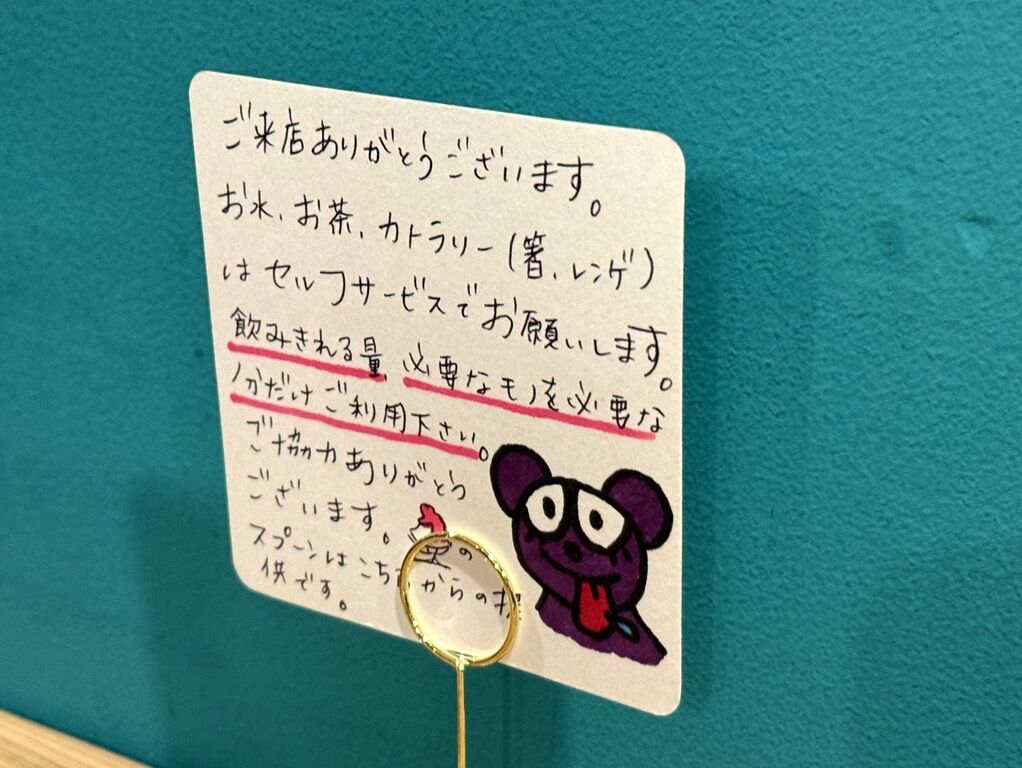 ご来店ありがとうございます。
お水、お茶、カトラリー(箸、レンゲ)
はセルフサービスでお願いします。
飲みきれる量、必要なモノを必要な
分だけご利用下さい。
ご協力ありがとう
ございます。
の
スプーンはこちらからの
供です。